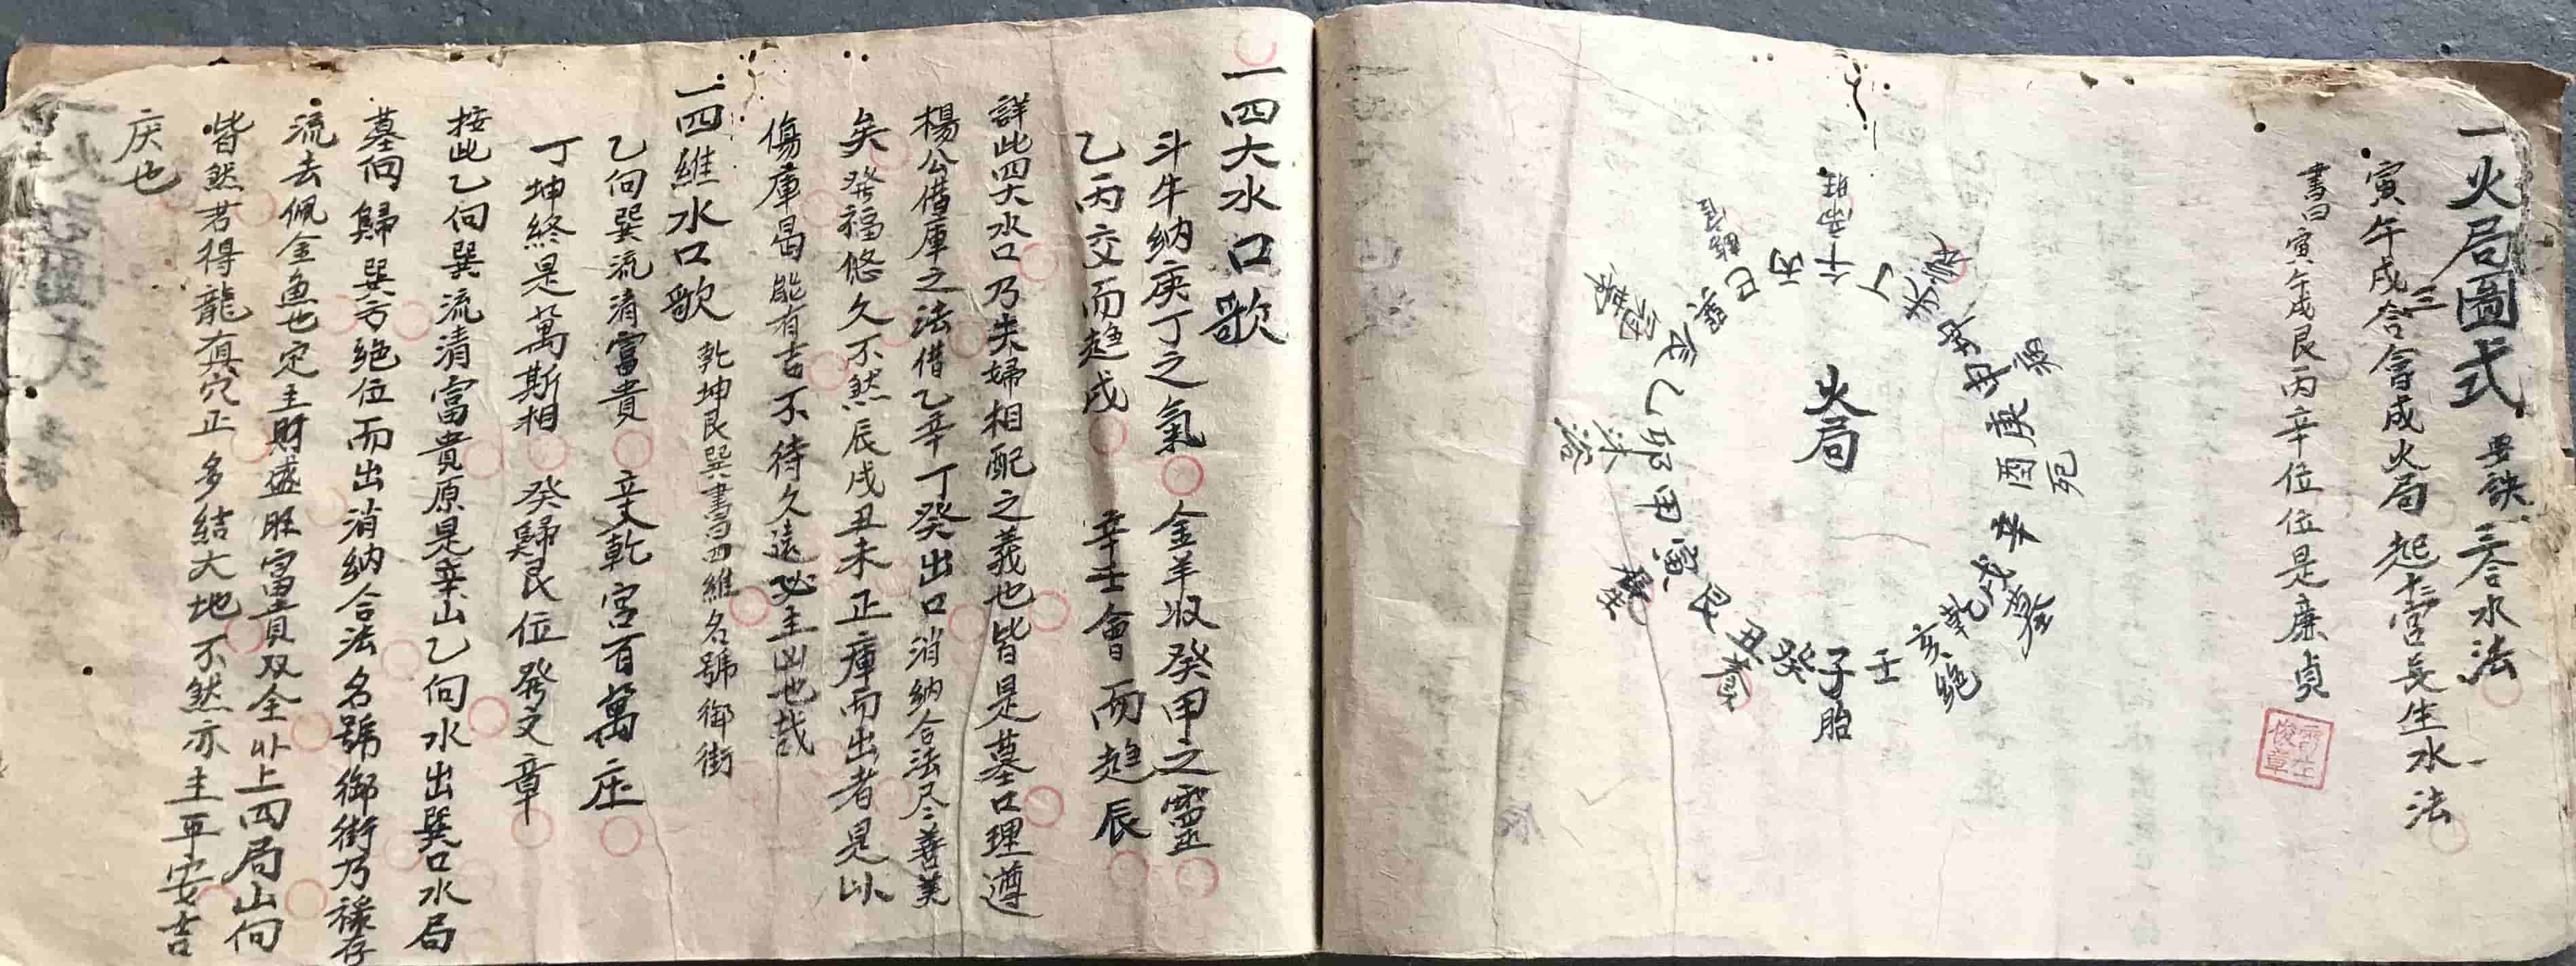 一火局圖式 要訣 三合水法
寅午戌三合會成火局 起十二宮長生水法
書曰寅午戌艮丙辛位位是廉貞
火局
午帝旺
丁
未衰
坤
申病
庚
酉死
辛
戌墓
乾
亥絕
壬
子胎
癸
丑養
艮
寅長生
甲
卯沐浴
乙
辰冠帶
巽
巳臨官
丙
一四大水口歌
斗牛纳庚丁之氣 金羊收癸甲之靈
乙丙交而趋戌 辛壬會而趋辰
詳此四大水口乃夫婦相配之義也皆是墓口理遵
楊公借庫之法借乙辛丁癸出口消納合法尽善美
矣發福悠久不然辰戌丑未正庫而出者是以
傷庫曷能有吉不待久遠必主凶也哉
一四維水口歌 乾坤艮巽書曰四維名號御街
乙向巽流清富貴 辛乾宮百萬庄
丁坤終是萬斯相 癸歸艮位發文章
按此乙向巽流清富貴原是辛山乙向水出巽口水局
墓向歸巽方絕位而出消納合法名號御街乃祿存
流去佩金魚也定主財盛旺富貴双全以上四局山向
皆然若得龍真穴正多結大地不然亦主平安吉
庆也